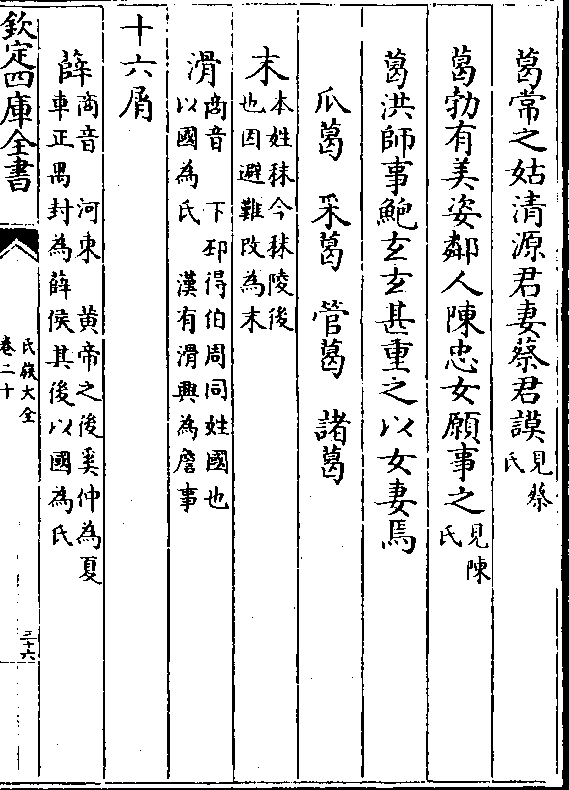 葛常之姑清源君妻蔡君謨見蔡氏
葛勃有美姿鄰人陳忠女願事之見陳氏
葛洪師事鮑玄玄甚重之以女妻焉
瓜葛　采葛　管葛　諸葛
末本姓秣今秣陵後也因避難改為末
滑商音　下邳得伯周同姓國也以國為氏　漢有滑興為詹事
十六屑
薛商音　河東　黄帝之後奚仲為夏車正禺封為薛侯其後以國為氏
欽定四庫全書
氏族大全
卷二十
三十六